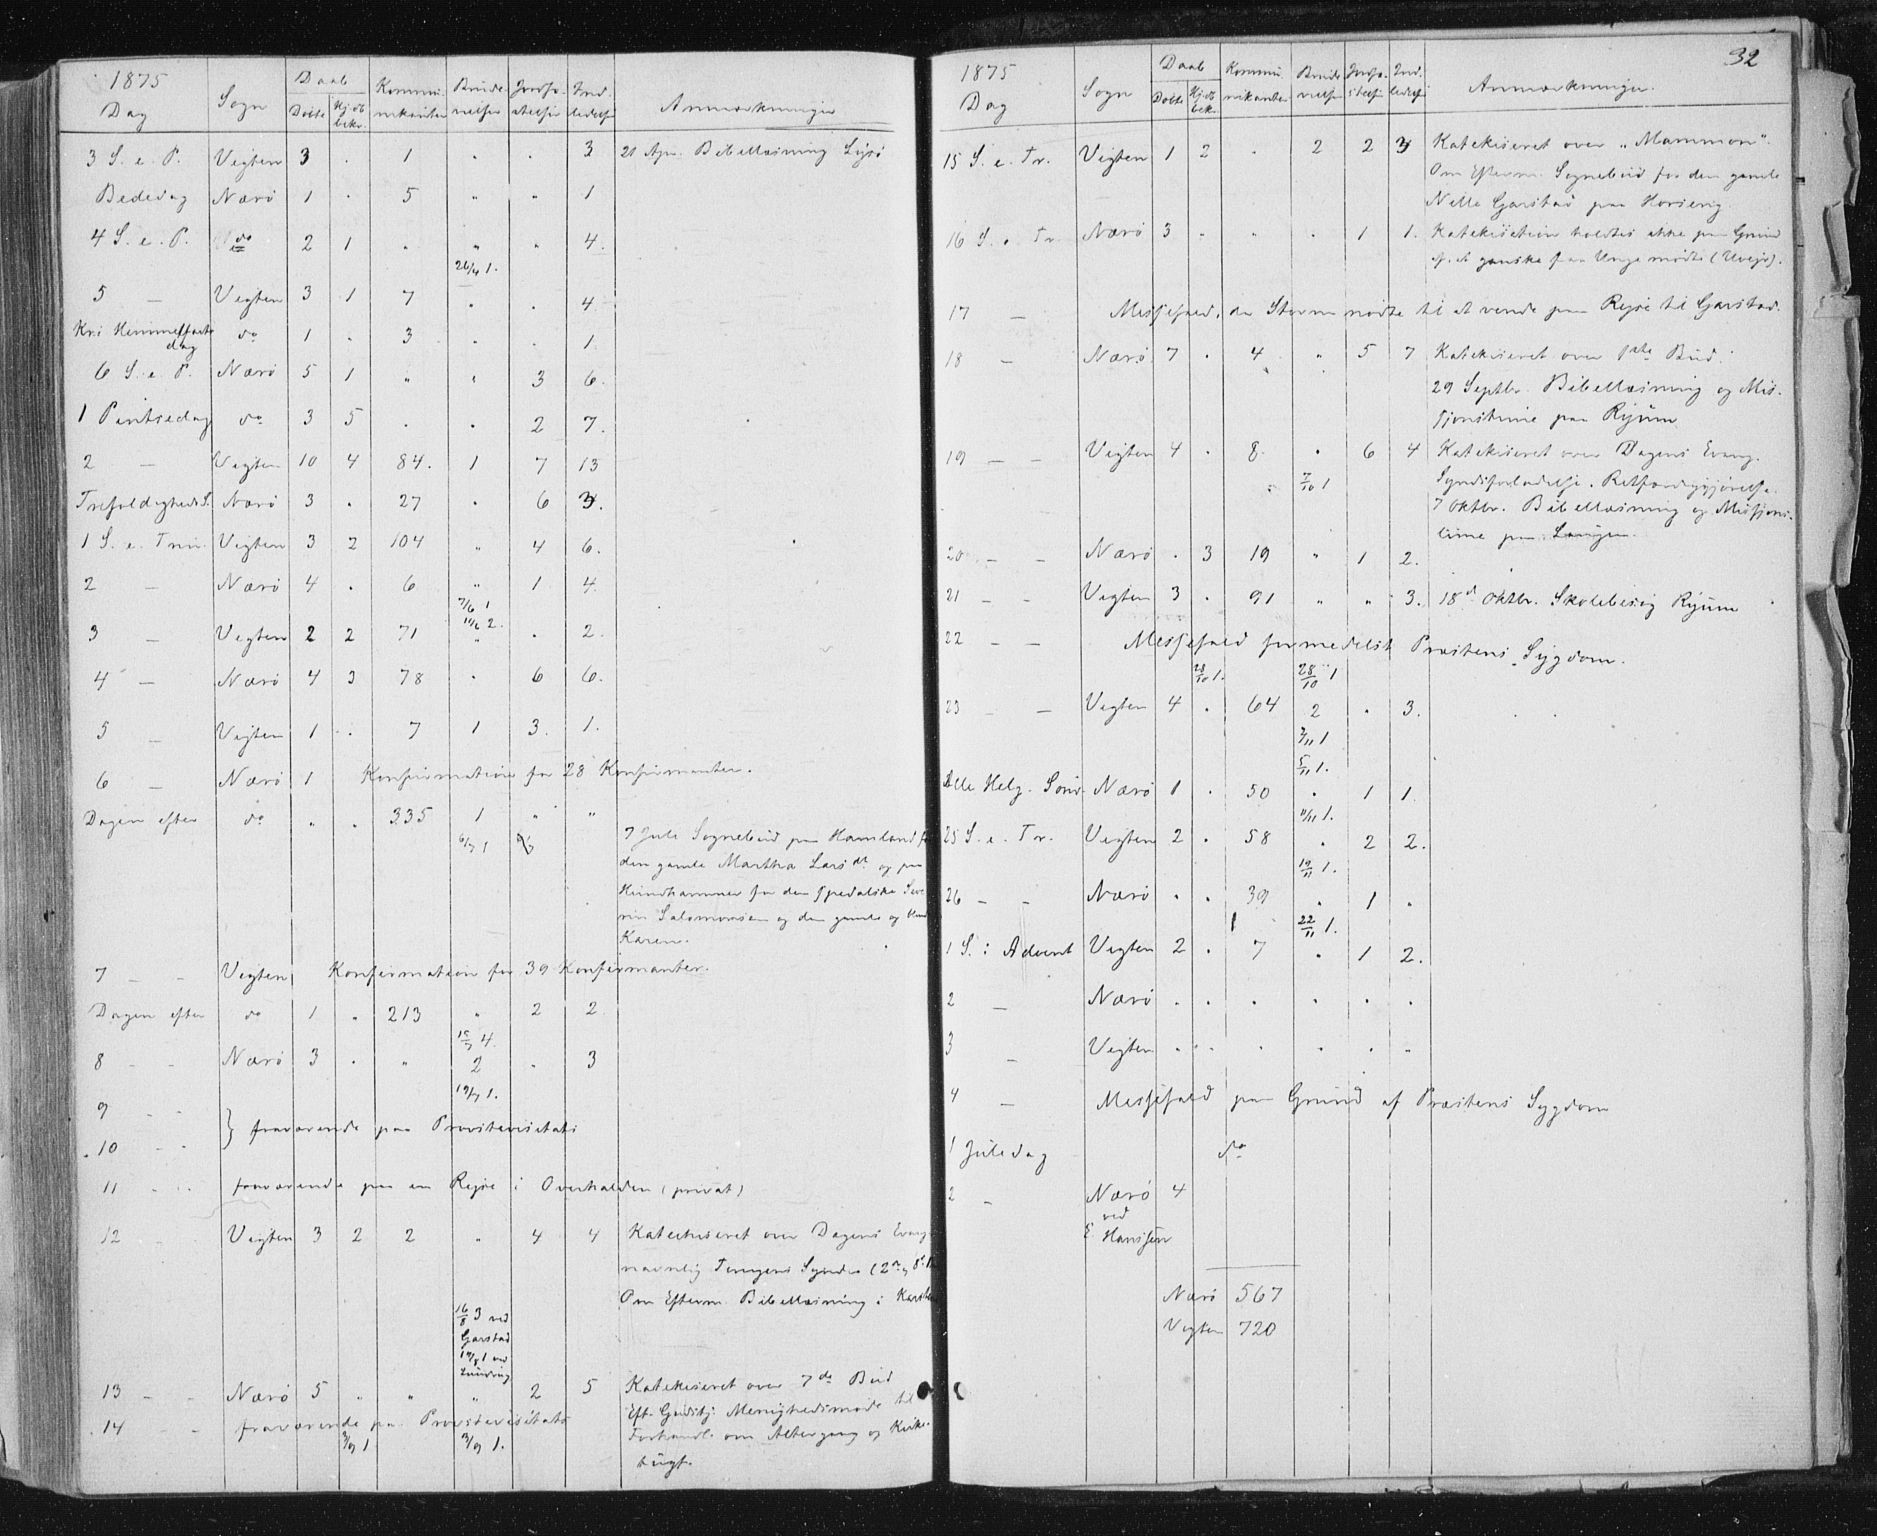 1875
Dag
Sogn
Daab
Døbte
Hj.db bekr.
Kommunikanter
Brudevielser
Jordfæstelser
Indledelser
Anmærkninger
3 S. e. P. Vigten 3 . 1 . . 3 21 Apr. Bibellæsning Lysø
Bededag Nærø 1 . 5 " " 1
4 S. e. P. do 2 1 . " " 4.
26/4 1.
5 — Vigten 3 1 7 . . 4.
Kri Himmelfarts dag do 1 . 3 . . 1.
6 S. e. P. Nærø 5 1 " . 3 6.
1 Pintsedag do 3 5 . . 2 7.
2 — Vigten 10 4 84. 1 7 13
Trefoldigheds S. Nærø 3 . 27 . 6 3.
1 S. e. Trin. Vigten 3 2 104 " 4 6.
2 — Nærø 4 . 6 " 1 4.
7/6 1
2.
3 — Vigten 2 2 71 " . 2.
4 — Nærø 4 3 78 . 6 6.
5 — Vigten 1 . 7 1 3. 1.
6 — Nærø 1 Konfirmation for 28 Konfirmanter.
Dagen efter do " . 335 1 " "
6/7 1
7 Juli Sognebud paa Hamland f
den gamle Martha Larsdt og paa
Hundhammer for den spedalske Seve
rin Salomonsen og den gamle og blind
Karen.
7 — — Vigten Konfirmation for 39 Konfirmanter.
Dagen efter do 1 " 213 " 2 2
15/7 4.
8 - - Nærø 3 . " 2 " 3
19/7 1.
9 - -
10 - - } fraværende paa Provstevisitats
11 - - fraværende paa en Rejse i Overhalden (privat)
12 — Vigten 3 2 2 " 4 4 Katechiseret over Dagens Evang
navnlig Tungens Synder (2n og 8d
Om Efterm. Bibellæsning i
16/8 3 ved
Garstad
1 ved
13 — — Nærø 5 " " " 2 5 Katekiseret over 7de Bud
Eft. Gudstj. Menighedsmøde til
14 - - fraværende paa Provstevisitats
Forhandl. om Altergang og Kirke-
3/9 1 3/9 1.
tugt.
32
1875
Dag
Sogn
Daab
Døbte
Hj.db bekr.
Kommunikanter
Brudevielser
Jordfæstelser
Indledelser
Anmærkninger.
15 S. e. Tr. Vigten 1 2 . 2 2 3 Katekiseret over „Mammon“.
Om Efterm. Sognebud for den gamle
Nelle Garstad paa Horsevig
16 S. e. Tr. Nærø 3 " " . 1 1. Katekisation holdtes ikke paa Grund
af at ganske faa Unge mødte (Uvejr).
17 — Messefald, da Storm nødte til at vende paa Rejse til Garstad.
18 — Nærø 7 . 4 " 5 7 Katekiseret over 1ste Bud.
29 Septbr. Bibellæsning og Mis-
sjonstime paa Ryum
19 — — Vigten 4 . 8. . 6 4 Katekiseret over Dagens Evang.
7/10 1
Syndsforladelse. Retfærdiggjørelse.
7 Oktbr. Bibellæsning og Missions-
time paa
20 — — Nærø . 3 19 " 1 2.
21 — — Vigten 3 . 91 " " 3. 18d Oktbr. Skolebesøg Ryum
22 — — Messefald formedelst Præstens Sygdom.
28/10 1. 28/10 1
23 — — Vigten 4 . 64 2 . 3.
2/11 1
5/11 1.
Alle Helg. Sønd. Nærø 1 . 50 . 1 1.
11/11 1.
25 S. e. Tr. Vigten 2 . 58 . 2 2.
19/11 1.
26 — — Nærø . . 39 . 1 .
1 22/11 1.
1 S. i Advent Vigten 2 . 7 . 1 2.
2 — Nærø . . . . . .
3 — Vigten . . . . . .
4 — Messefald paa Grund af Præstens Sygdom
1 Juledag do
2 — Nærø 4
ved
E. Hanssen
Nærø 567
Vigten 720